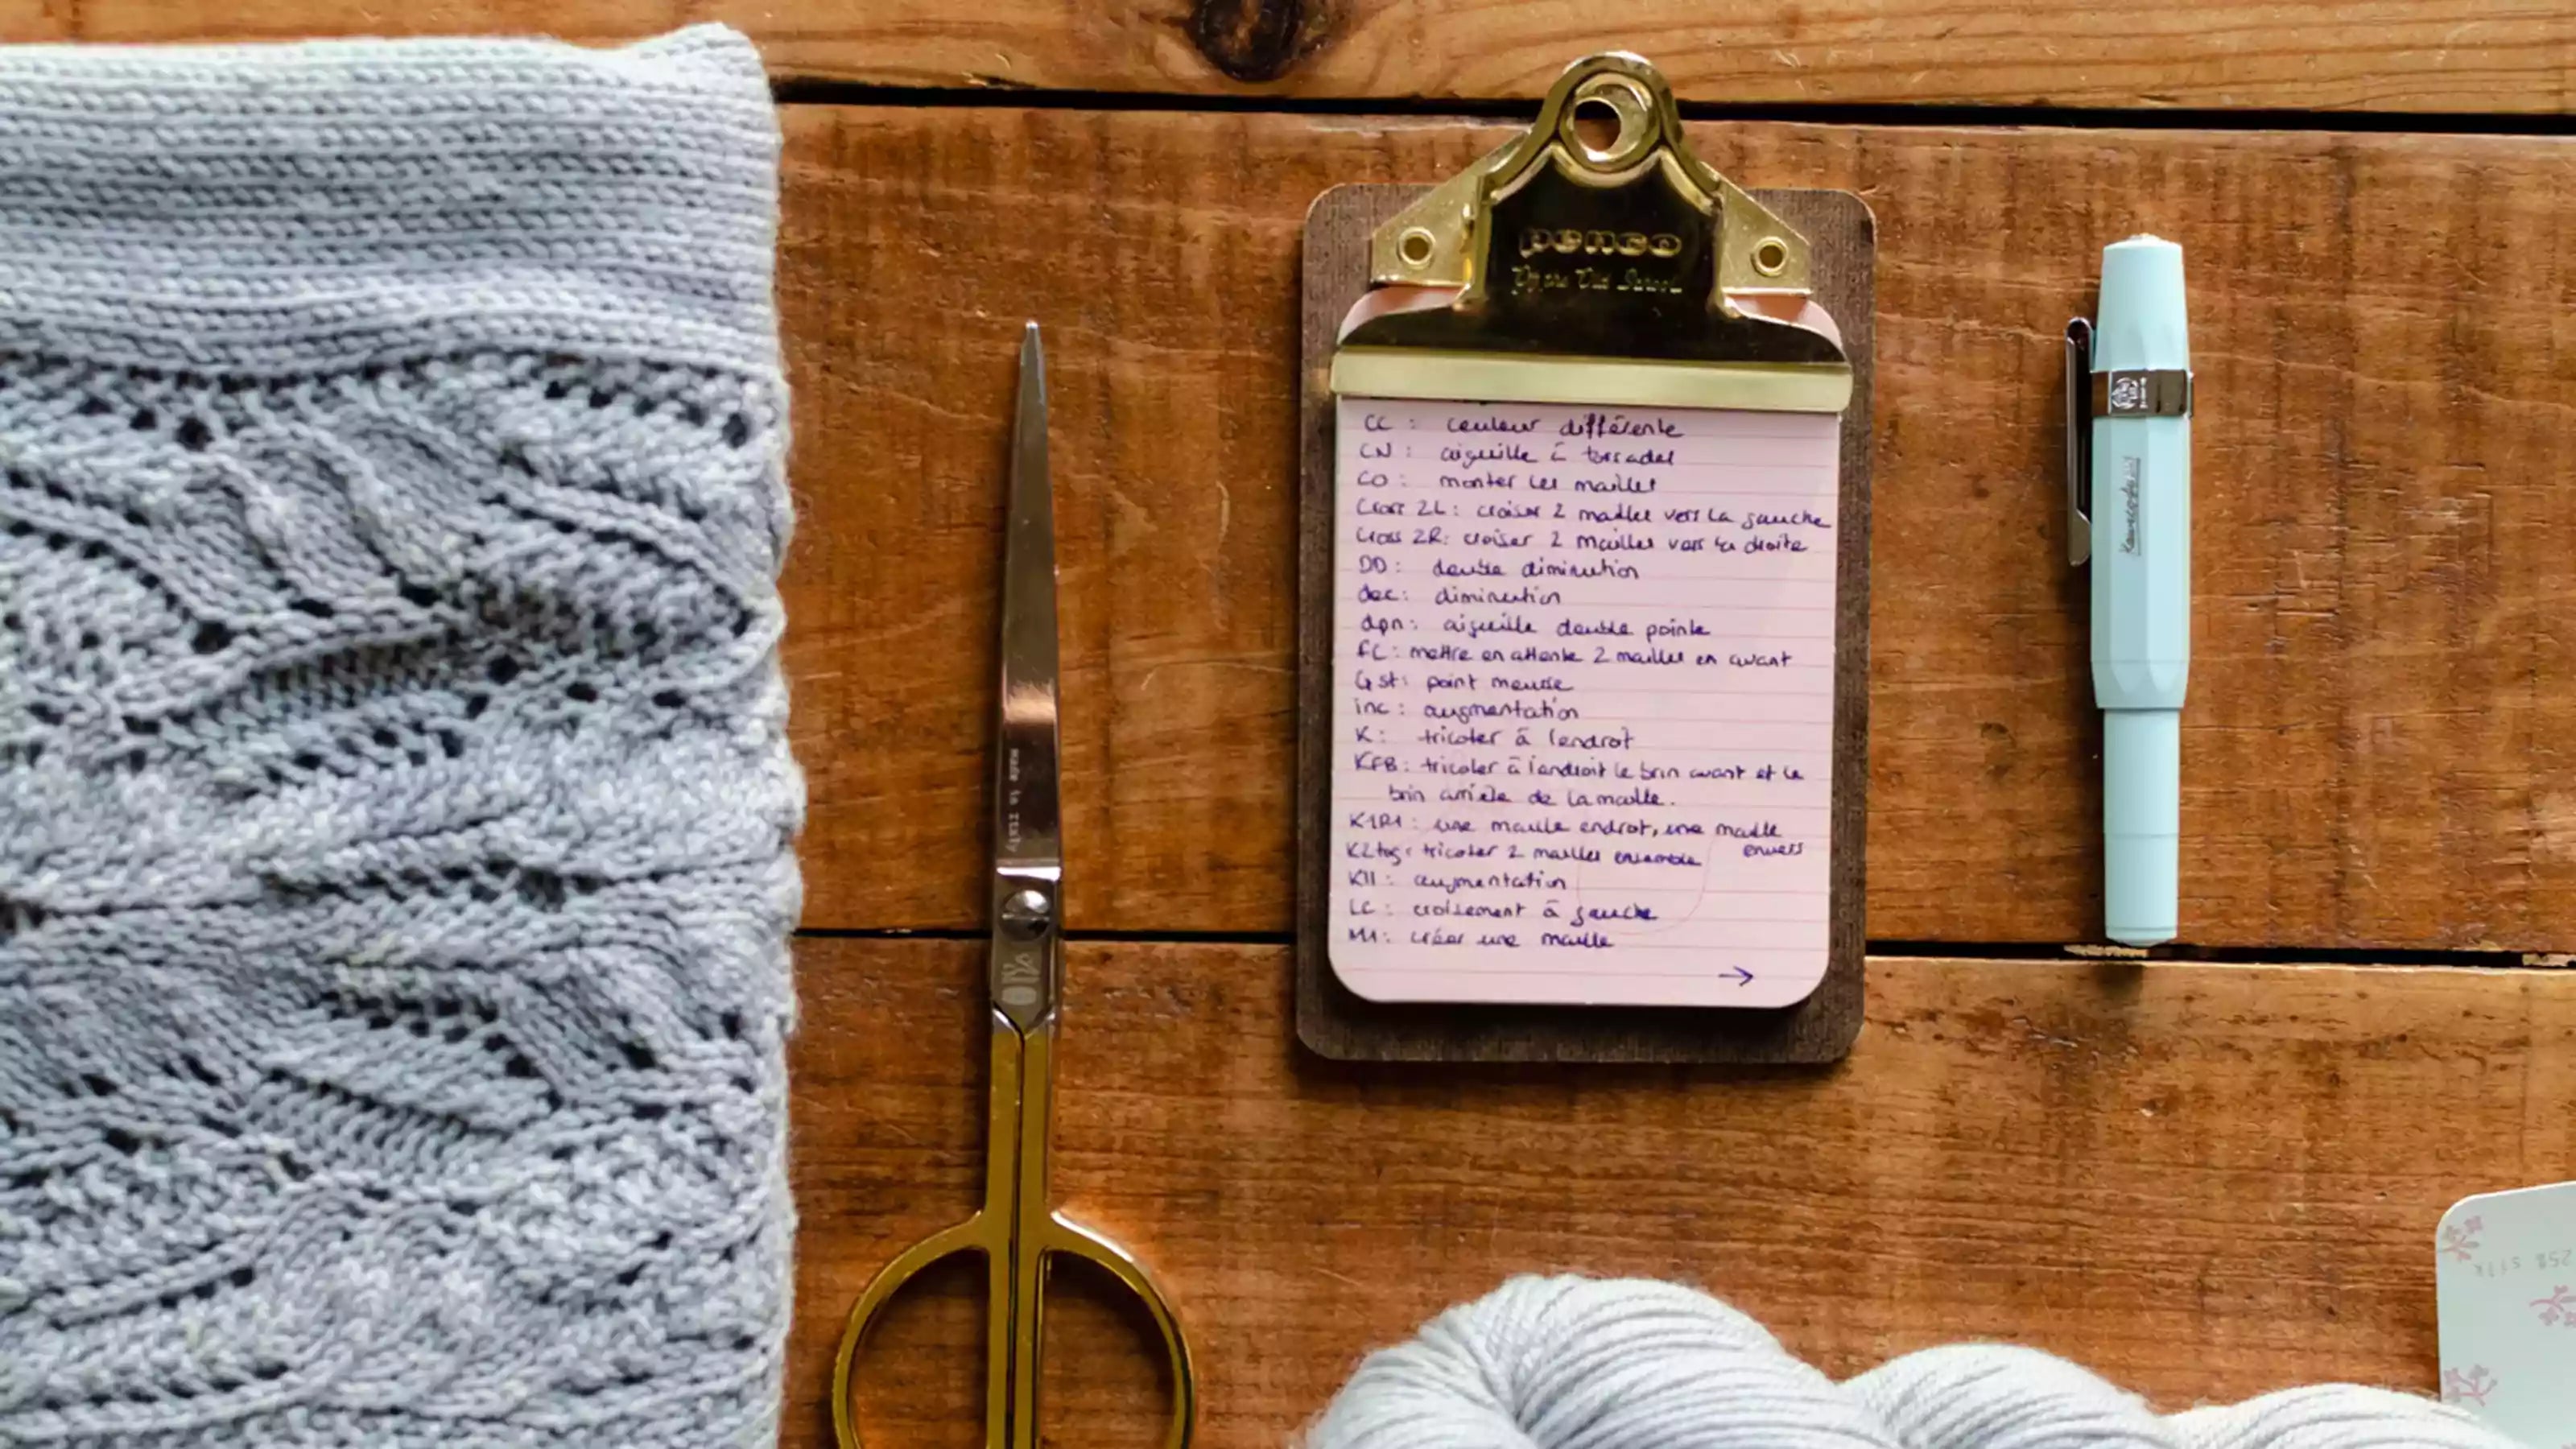 penco
CC : couleur différente
CN : aiguille à torsades
CO : monter les mailles
Cross 2L : croiser 2 mailles vers la gauche
Cross 2R : croiser 2 mailles vers la droite
DD : double diminution
dec : diminution
dpn : aiguille double pointe
FC : mettre en attente 2 mailles en avant
G st : point mousse
inc : augmentation
K : tricoter à l'endroit
KFB : tricoter à l'endroit le brin avant et le
brin arrière de la maille.
K1P1 : une maille endroit, une maille
envers
K2tog : tricoter 2 mailles ensemble
K11 : augmentation
LC : croisement à gauche
M1 : créer une maille
→
made in Italy
Kaweco